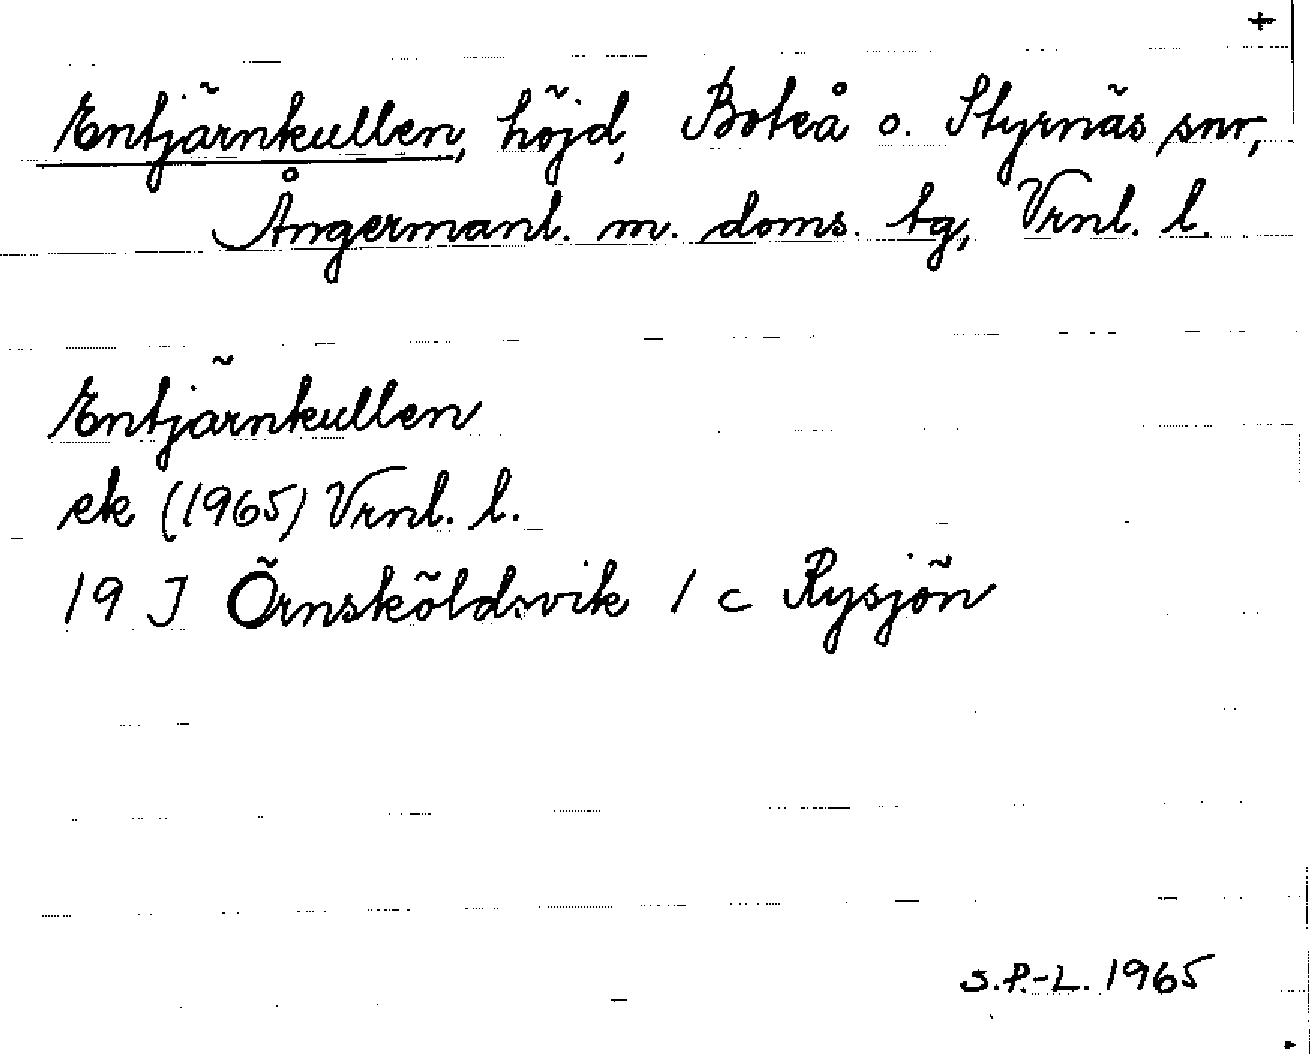 +
Entjärnkullen, höjd, Boteå o. Styrnäs snr,
Ångermanl. m. doms. tg, Vrnl. l.
Entjärnkullen
ek (1965) Vrnl. l.
19 J Örnsköldsvik 1 c Rysjön
S.P.-L. 1965